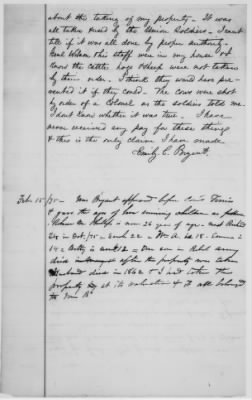 about the taking of my property - It was
all taken by the Union Soldiers - I cant
tell if it was all done by proper authority.
Genl & his staff were in my house & I
know the cattle hogs & sheep were not taken
by their order. I think they would have pre-
vented it if they could. The cows were shot
by order of a Colonel as the soldiers told me
I dont know whether it was true. I have
never received any pay for these things
& this is the only claim I have made
Emily C. Bryant,
Feb 15/75 - Mrs Bryant appeared before
& gave the ages of her children as follows
is now 26 years of age -
24 in Oct/75 - 22 - is 18 - Emma
14 & Betty is 12 = One son in Rebel army
died after the property was taken
Husband died in 1862 &
property at its valuation & it all belonged
to